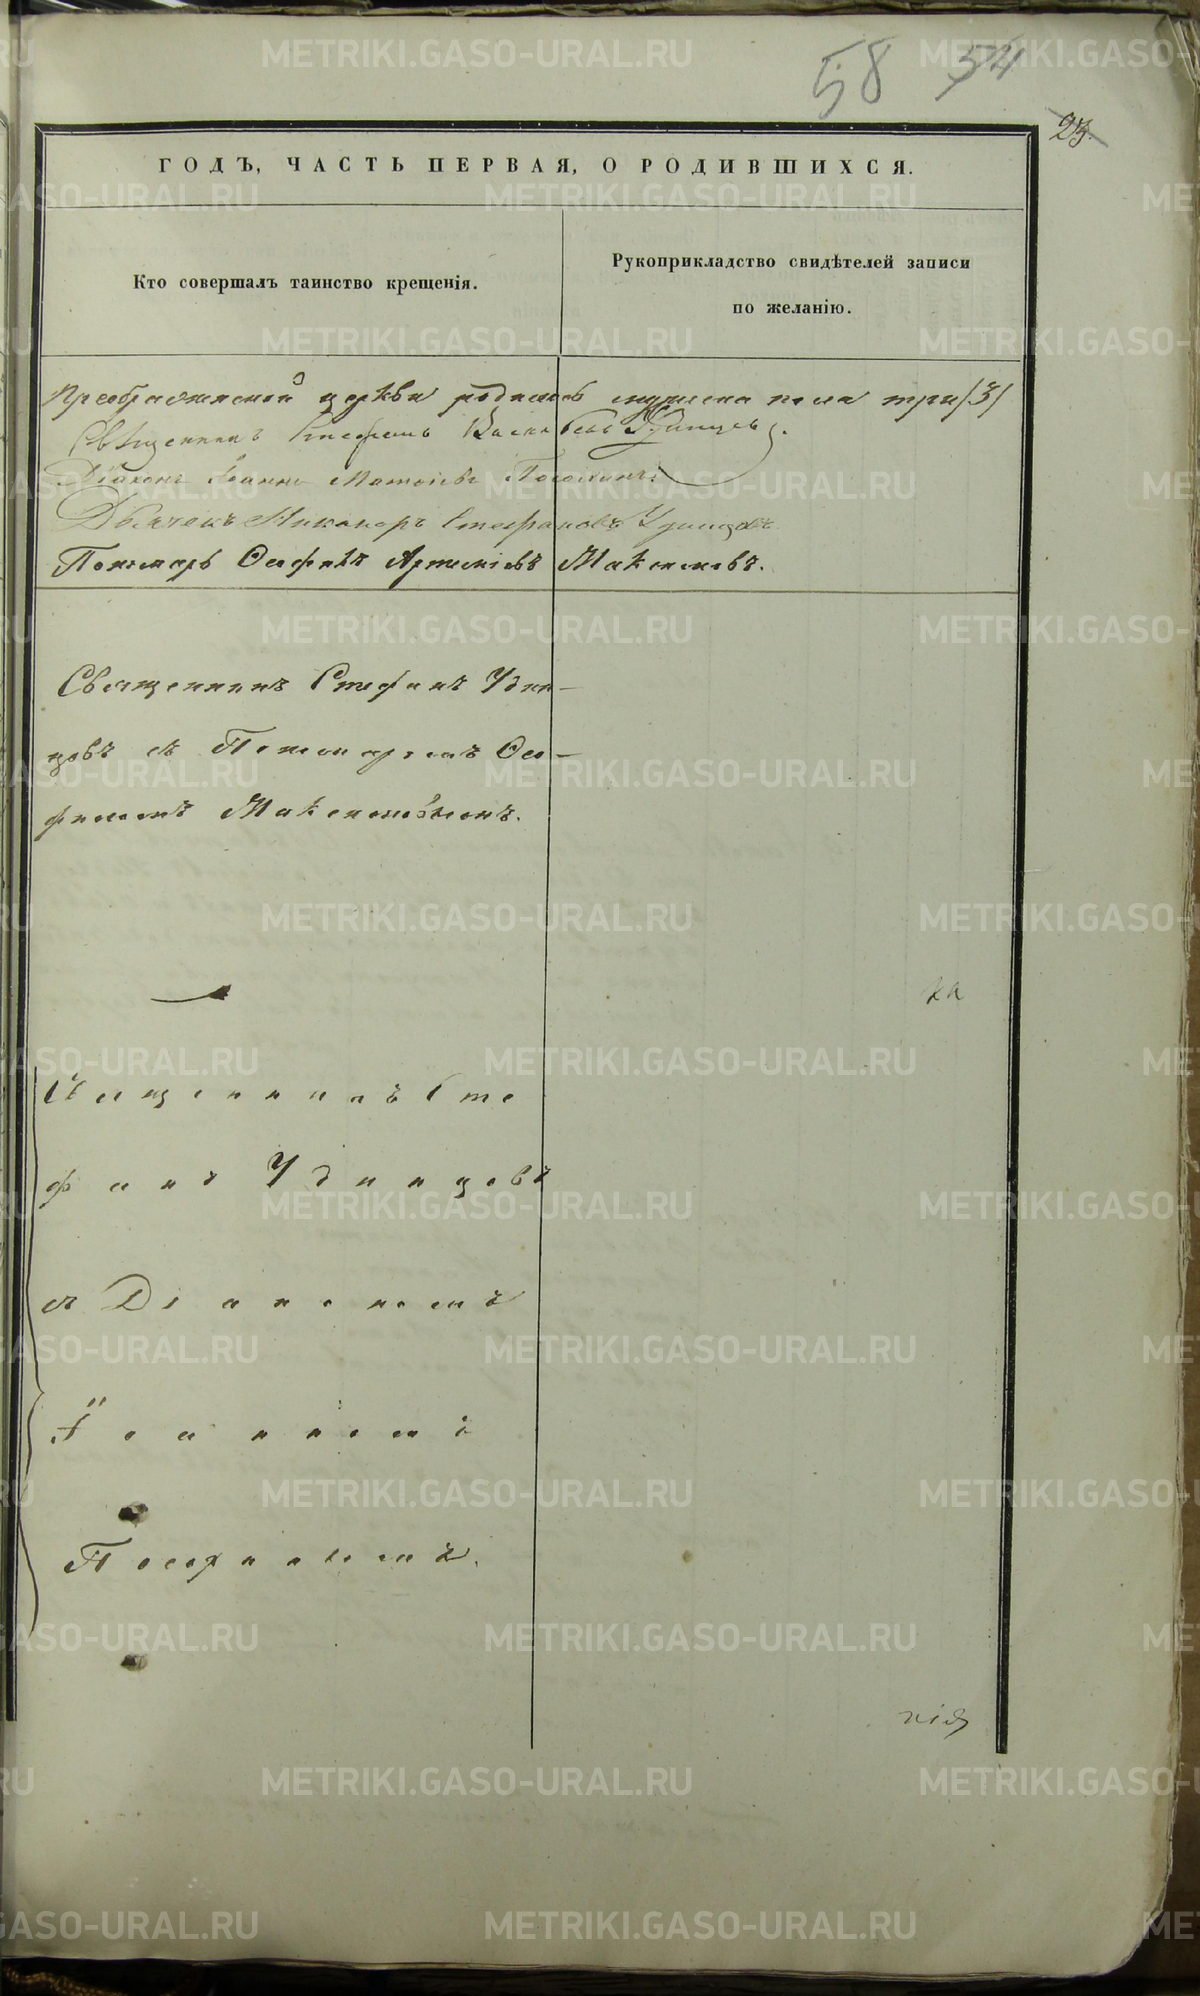 58 54
23.
ГОДЪ, ЧАСТЬ ПЕРВАЯ, О РОДИВШИХСЯ.
Кто совершалъ таинство крещенія.
Рукоприкладство свидѣтелей записи
по желанію.
Преображенской церкви родилось мужеска пола три /3/
Священникъ Стефанъ Удинцевъ.
Діаконъ Іоаннъ
Дьячекъ Никаноръ Стефановъ Удинцовъ
Пономарь Ѳеофилъ Артемьевъ Максимовъ.
Священникъ Стефанъ Удин-
цовъ съ Пономаремъ Ѳео-
филомъ Максимовымъ.
Священникъ Сте
фанъ Удинцовъ
съ Діакономъ
Іоанномъ
METRIKI.GASO-URAL.RU